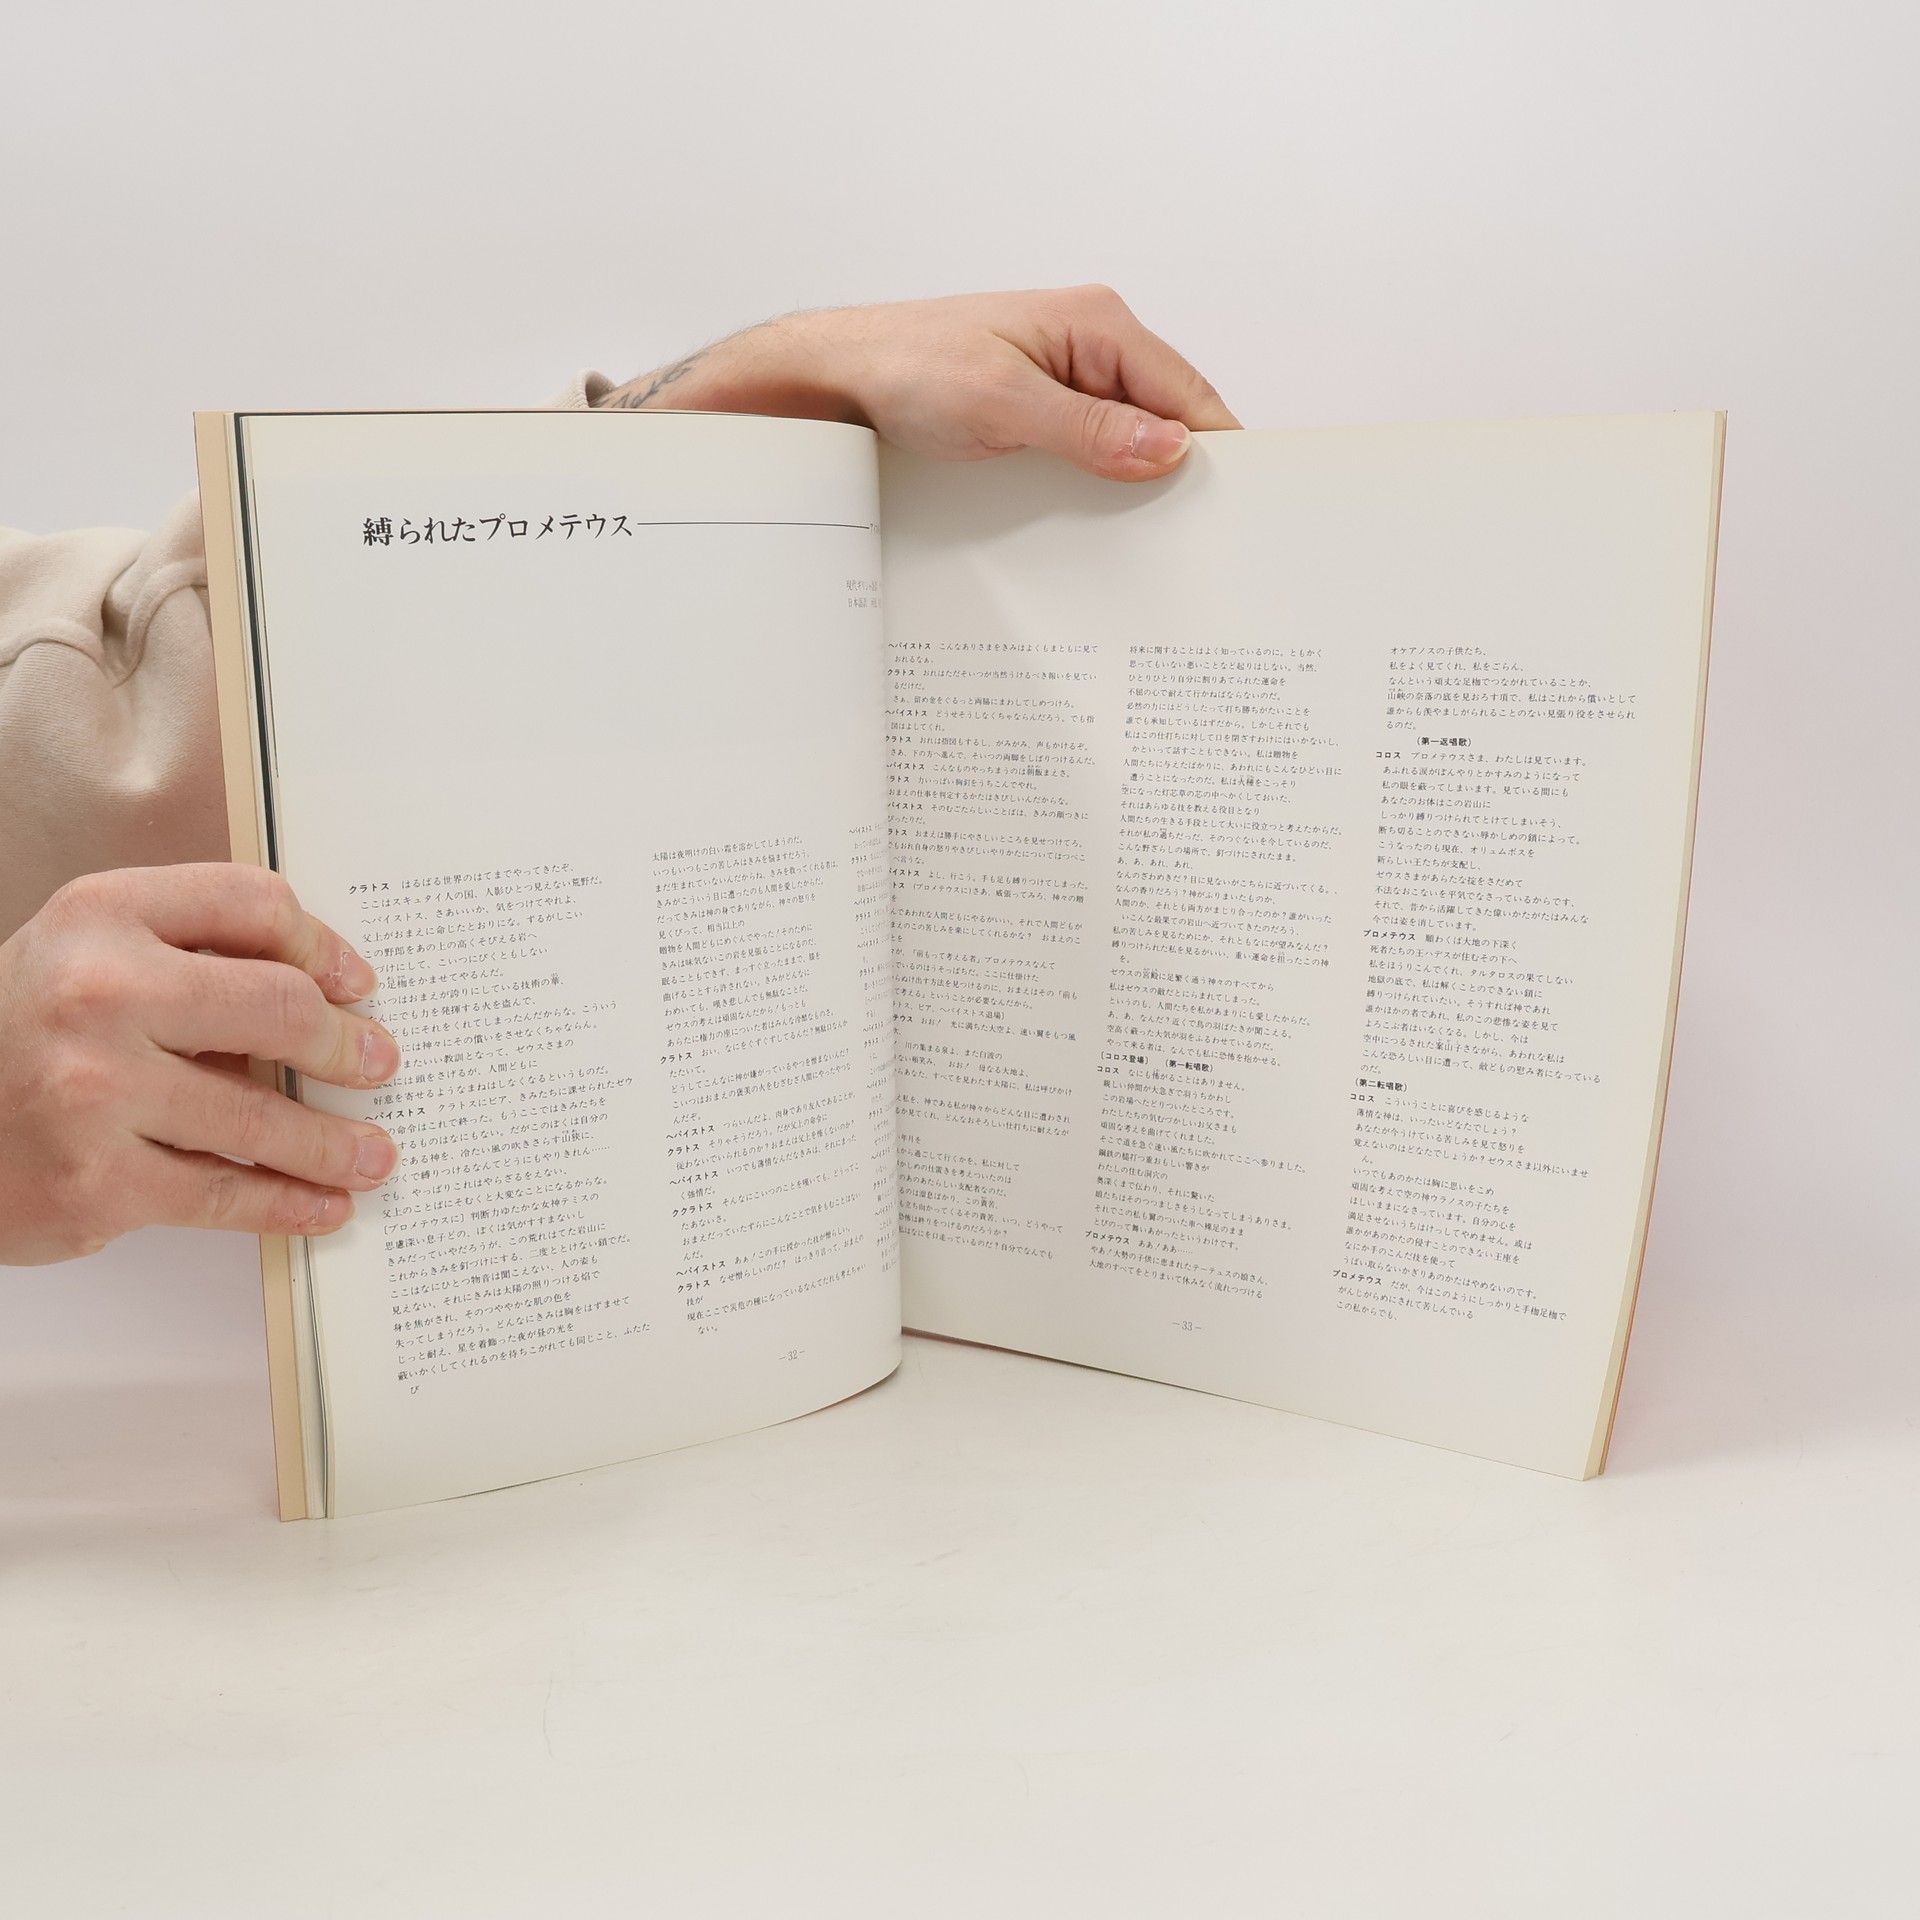 縛られたプロメテウス
クラトス　はるばる世界のはてまでやってきたぞ、
ここはスキュタイ人の国、人影ひとつ見えない荒野だ。
ヘパイストス、さあいいか、気をつけてやれよ、
父上がおまえに命じたとおりにな。するがしこい
この野郎をあの上の高くそびえる岩へ
づけにして、こいつにびくともしない
の足枷をかませてやるんだ。
こいつはおまえが誇りにしている技術の華、
なんにでも力を発揮する火を盗んで、
どもにそれをくれてしまったんだからな。こういう
には神々にその償いをさせなくちゃならん。
またいい教訓となって、ゼウスさまの
には頭をさげるが、人間どもに
好意を寄せるようなまねはしなくなるというものだ。
ヘパイストス　クラトスにビア、きみたちに課せられたゼウ
の命令はこれで終った。もうここではきみたちを
するものはなにもない。だがこのぼくは自分の
である神を、冷たい風の吹きさらす山狭に、
づくで縛りつけるなんてどうにもやりきれん……
でも、やっぱりこれはやらざるをえない、
父上のことばにそむくと大変なことになるからな。
[プロメテウスに] 判断力ゆたかな女神テミスの
思慮深い息子どの、ぼくは気がすすまないし
きみだっていやだろうが、この荒れはてた岩山に
これからきみを釘づけにする、二度ととけない鎖でだ。
ここはなにひとつ物音は聞こえない、人の姿も
見えない、それにきみは太陽の照りつける焔で
身を焦がされ、そのつややかな肌の色を
失ってしまうだろう。どんなにきみは胸をはずませて
じっと耐え、星を着飾った夜が昼の光を
蔽いかくしてくれるのを待ちこがれても同じこと、ふたた
び
太陽は夜明けの白い霜を溶かしてしまうのだ。
いつもいつもこの苦しみはきみを悩ますだろう。
まだ生まれていないんだからね、きみを救ってくれる者は。
きみがこういう目に遭ったのも人間を愛したからだ。
だってきみは神の身でありながら、神々の怒りを
見くびって、相当以上の
贈物を人間どもにめぐんでやった！そのために
きみは味気ないこの岩を見張ることになるのだ、
眠ることもできず、まっすぐ立ったままで、膝を
曲げることすら許されない。きみがどんなに
わめいても、嘆き悲しんでも無駄なことだ。
ゼウスの考えは頑固なんだから！もっとも
あらたに権力の座についた者はみんな冷酷なものさ。
クラトス　おい、なにをぐずぐずしてるんだ？無駄口なんか
たたいて。
どうしてこんなに神が嫌がっているやつを憎まないんだ？
こいつはおまえの褒美の火をむざむざ人間にやったやつな
んだぞ。
ヘパイストス　つらいんだよ、肉身であり友人であることが。
クラトス　そりゃそうだろう。だが父上の命令に
従わないでいられるのか？おまえは父上を怖くないのか？
ヘパイストス　いつでも薄情なんだなきみは、それにまった
く強情だ。
ククラトス　そんなにこいつのことを嘆いても、どうってこ
たあないさ。
おまえだっていたずらにこんなことで気をもむことはない
んだ。
ヘパイストス　あぁ！この手に授かった技が憎らしい。
クラトス　なぜ憎らしいのだ？　はっきり言って、おまえの
技が
現在ここで災危の種になっているなんてだれも考えちゃい
ない。
－32－
ヘパイストス　こんなありさまをきみはよくもまともに見て
おれるなぁ。
クラトス　おれはただそいつが当然うけるべき報いを見てい
るだけだ。
さぁ、留め金をぐるっと両脇にまわしてしめつけろ。
ヘパイストス　どうせそうしなくちゃならんだろう。でも指
図はよしてくれ。
クラトス　おれは指図もするし、がみがみ、声もかけるぞ。
さあ、下の方へ進んで、そいつの両脚をしばりつけるんだ。
ヘパイストス　こんなものやっちまうのは朝飯まえさ。
クラトス　力いっぱい胸釘をうちこんでやれ。
おまえの仕事を判定するかたはきびしいんだからな。
ヘパイストス　そのむごたらしいことばは、きみの顔つきに
ぴったりだ。
クラトス　おまえは勝手にやさしいところを見せつけてろ。
でもおれ自身の怒りやきびしいやりかたについてはつべこ
べ言うな。
ヘパイストス　よし、行こう。手も足も縛りつけてしまった。
トス　(プロメテウスに)さあ、威張ってみろ、神々の贈
を
んであわれな人間どもにやるがいい。それで人間どもが
まえのこの苦しみを楽にしてくれるかな？　おまえのこ
とを
が、「前もって考える者」プロメテウスなんて
でいるのはうそっぱちだ。ここに仕掛けた
らぬけ出す方法を見つけるのに、おまえはその「前も
て考える」ということが必要なんだから。
トス、ビア、ヘパイストス退場］
テウス　おお！　光に満ちた大空よ、速い翼をもつ風
川の集まる泉よ、また白波の
ない頬笑み、　おお！　母なる大地よ、
らあなた、すべてを見わたす太陽に、私は呼びかけ
え私を、神である私が神々からどんな目に遭わされ
るか見てくれ、どんなおそろしい仕打ちに耐えなが
年月を
から過ごして行くかを、私に対して
かしめの仕置きを考えついたのは
のあのあたらしい支配者なのだ、
るのは溜息ばかり、この責苦、
も立ち向かってくるその責苦、いつ、どうやって
恐怖は終りをつげるのだろうか？
私はなにを口走っているのだ？自分でなんでも
将来に関することはよく知っているのに。ともかく
思ってもいない悪いことなど起りはしない。当然、
ひとりひとり自分に割りあてられた運命を
不屈の心で耐えて行かねばならないのだ。
必然の力にはどうしたって打ち勝ちがたいことを
誰でも承知しているはずだから。しかしそれでも
私はこの仕打ちに対して口を閉ざすわけにはいかないし、
かといって話すこともできない。私は贈物を
人間たちに与えたばかりに、あわれにもこんなひどい目に
遭うことになったのだ。私は火種をこっそり
空になった灯芯草の芯の中へかくしておいた、
それはあらゆる技を教える役目となり
人間たちの生きる手段として大いに役立つと考えたからだ。
それが私の過ちだった、そのつぐないを今しているのだ、
こんな野ざらしの場所で、釘づけにされたまま。
あ、あ、あれ、あれ、
なんのざわめきだ？目に見ないがこちらに近づいてくる。、
なんの香りだろう？神がふりまいたものか、
人間のか、それとも両方がまじり合ったのか？誰がいった
いこんな最果ての岩山へ近づいてきたのだろう、
私の苦しみを見るためにか、それともなにが望みなんだ？
縛りつけられた私を見るがいい、重い運命を担ったこの神
を。
ゼウスの宮殿に足繁く通う神々のすべてから
私はゼウスの敵だとにらまれてしまった。
というのも、人間たちを私があまりにも愛したからだ。
あ、あ、なんだ？近くで鳥の羽ばたきが聞こえる。
空高く蔽った大気が羽をふるわせているのだ。
やって来る者は、なんでも私に恐怖を抱かせる。
［コロス登場］　（第一転唱歌）
コロス　なにも怖がることはありません。
親しい仲間が大急ぎで羽うちかわし
この岩場へたどりついたところです。
わたしたちの気むづかしいお父さまも
頑固な考えを曲げてくれました。
そこで道を急ぐ速い風たちに吹かれてここへ参りました。
鋼鉄の槌打つ重おもしい響きが
わたしの住む洞穴の
奥深くまで伝わり、それに驚いた
娘たちはそのつつましさをうしなってしまうありさま。
それでこの私も翼のついた車へ裸足のまま
とびのって舞いあがったというわけです。
プロメテウス　ああ！ああ……
やあ！大勢の子供に恵まれたテーテュスの娘さん、
大地のすべてをとりまいて休みなく流れつづける
オケアノスの子供たち、
私をよく見てくれ、私をごらん、
なんという頑丈な足枷でつながれていることか、
山峡の奈落の底を見おろす頂で、私はこれから償いとして
誰からも羨やましがられることのない見張り役をさせられ
るのだ。
（第一返唱歌）
コロス　プロメテウスさま、わたしは見ています。
あふれる涙がぼんやりとかすみのようになって
私の眼を蔽ってしまいます。見ている間にも
あなたのお体はこの岩山に
しっかり縛りつけられてとけてしまいそう、
断ち切ることのできない辱かしめの鎖によって。
こうなったのも現在、オリュムポスを
新らしい王たちが支配し、
ゼウスさまがあらたな掟をさだめて
不法なおこないを平気でなさっているからです、
それで、昔から活躍してきた偉いかたがたはみんな
今では姿を消しています。
プロメテウス　願わくば大地の下深く
死者たちの王ハデスが住むその下へ
私をほうりこんでくれ、タルタロスの果てしない
地獄の底で、私は解くことのできない鎖に
縛りつけられていたい。そうすれば神であれ
誰かほかの者であれ、私のこの悲惨な姿を見て
よろこぶ者はいなくなる。しかし、今は
空中につるされた案山子さながら、あわれな私は
こんな恐ろしい目に遭って、敵どもの慰み者になっている
のだ。
（第二転唱歌）
コロス　こういうことに喜びを感じるような
薄情な神は、いったいどなたでしょう？
あなたが今うけている苦しみを見て怒りを
覚えないのはどなたでしょうか？ゼウスさま以外にいませ
ん。
いつでもあのかたは胸に思いをこめ
頑固な考えで空の神ウラノスの子たちを
ほしいままになさっています。自分の心を
満足させないうちはけっしてやめません。或は
誰かがあのかたの侵すことのできない王座を
なにか手のこんだ技を使って
うばい取らないかぎりあのかたはやめないのです。
プロメテウス　だが、今はこのようにしっかりと手枷足枷で
がんじがらめにされて苦しんでいる
この私からでも、
－33－